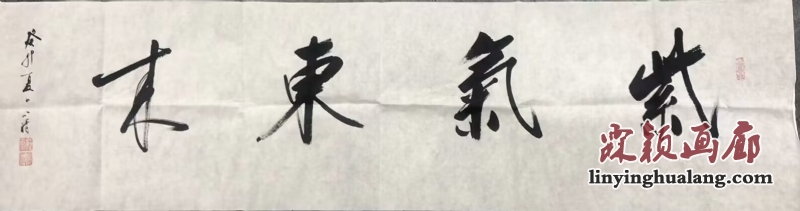 紫氣東来
癸卯夏
霖颖画廊
linyinghualang.com